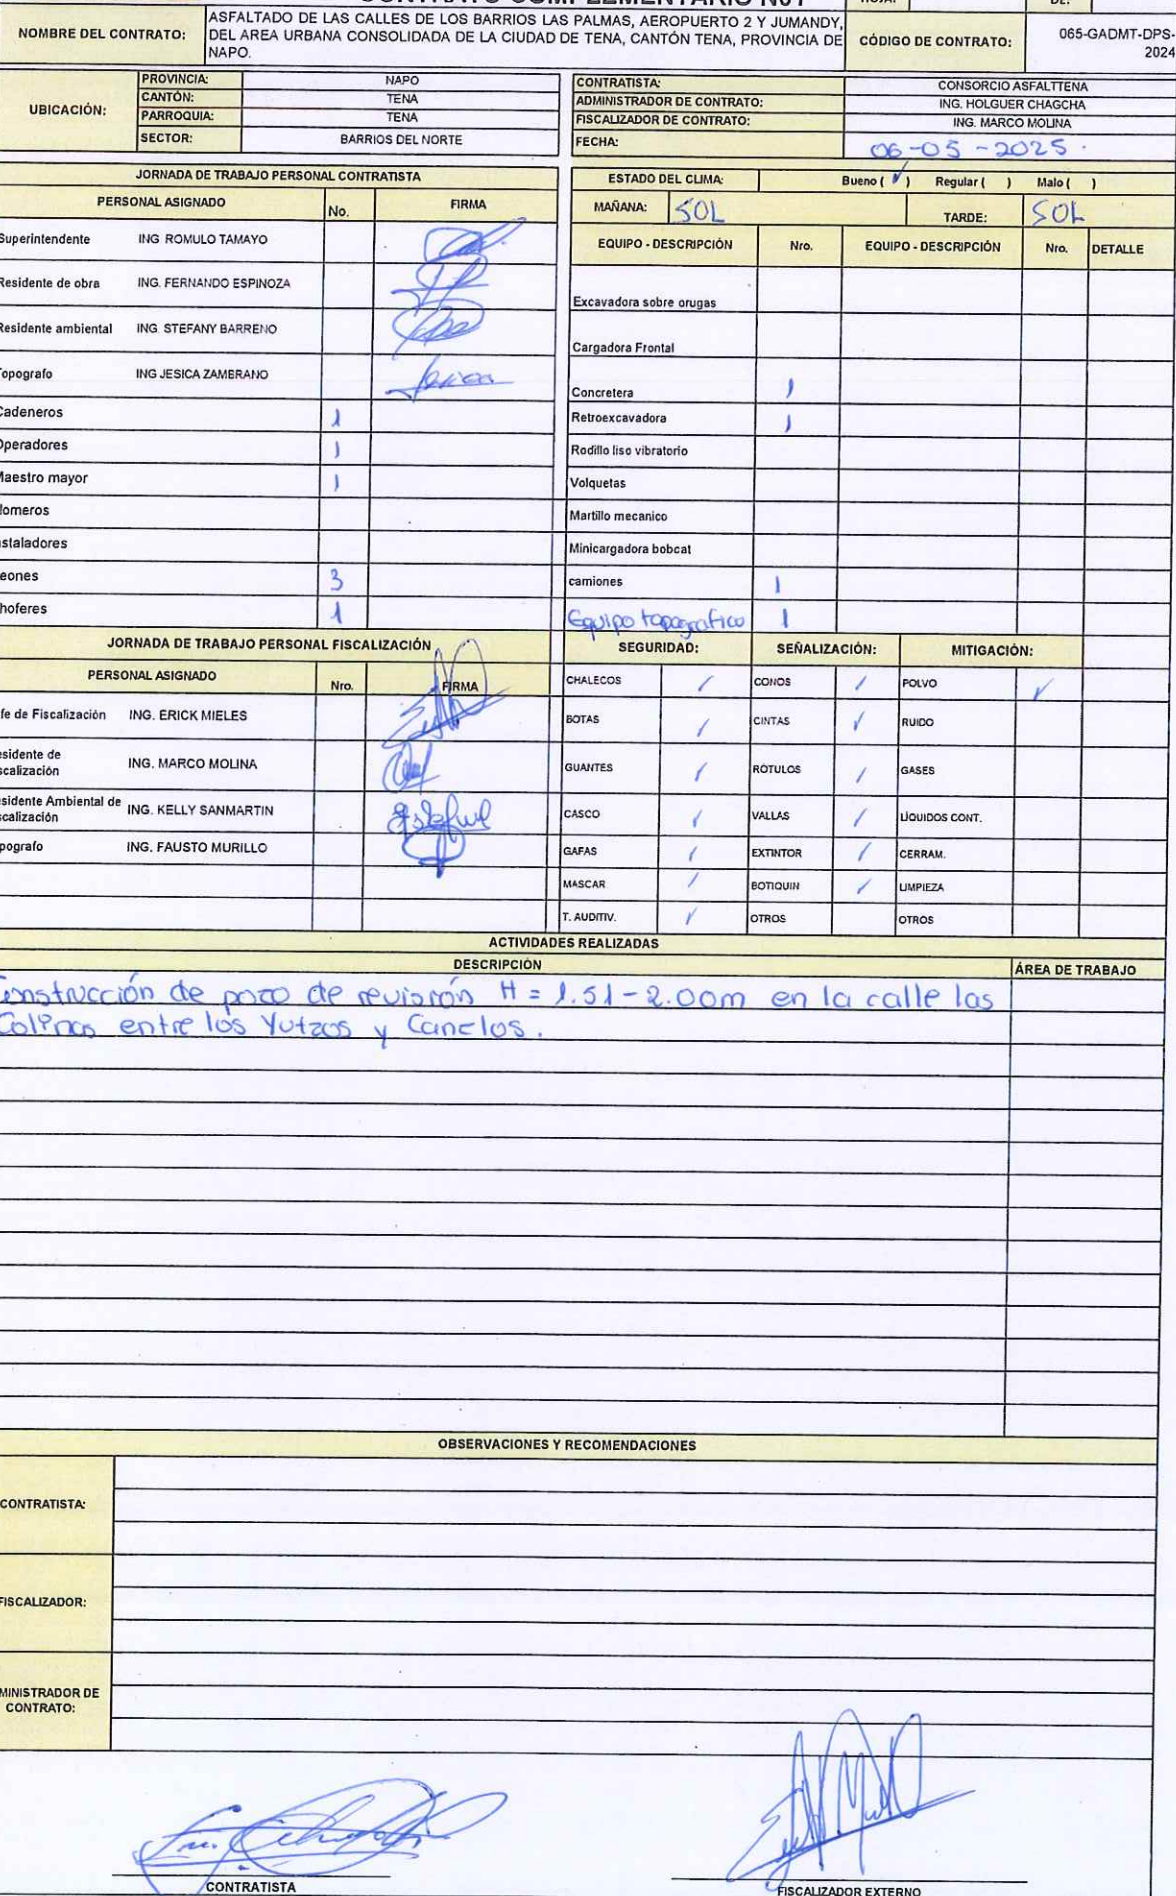 CONTRATO COMPLEMENTARIO N01
HOJA: DE:
NOMBRE DEL CONTRATO:
ASFALTADO DE LAS CALLES DE LOS BARRIOS LAS PALMAS, AEROPUERTO 2 Y JUMANDY,
DEL AREA URBANA CONSOLIDADA DE LA CIUDAD DE TENA, CANTÓN TENA, PROVINCIA DE
NAPO.
CÓDIGO DE CONTRATO:
065-GADMT-DPS-
2024
UBICACIÓN:
PROVINCIA: NAPO
CANTÓN: TENA
PARROQUIA: TENA
SECTOR: BARRIOS DEL NORTE
CONTRATISTA: CONSORCIO ASFALTTENA
ADMINISTRADOR DE CONTRATO: ING. HOLGUER CHAGCHA
FISCALIZADOR DE CONTRATO: ING. MARCO MOLINA
FECHA: 06-05-2025.
JORNADA DE TRABAJO PERSONAL CONTRATISTA
PERSONAL ASIGNADO No. FIRMA
Superintendente ING ROMULO TAMAYO
Residente de obra ING. FERNANDO ESPINOZA
Residente ambiental ING. STEFANY BARRENO
opografo ING JESICA ZAMBRANO
Cadeneros 1
Operadores 1
Maestro mayor 1
lomeros
staladores
eones 3
hoferes 1
ESTADO DEL CLIMA: Bueno ( ✓ ) Regular ( ) Malo ( )
MAÑANA: SOL TARDE: SOL
EQUIPO - DESCRIPCIÓN Nro. EQUIPO - DESCRIPCIÓN Nro. DETALLE
Excavadora sobre orugas
Cargadora Frontal
Concretera 1
Retroexcavadora 1
Rodillo liso vibratorio
Volquetas
Martillo mecanico
Minicargadora bobcat
camiones 1
Equipo topografico 1
JORNADA DE TRABAJO PERSONAL FISCALIZACIÓN
PERSONAL ASIGNADO Nro. FIRMA
fe de Fiscalización ING. ERICK MIELES
esidente de
scalización ING. MARCO MOLINA
esidente Ambiental de
scalización ING. KELLY SANMARTIN
pografo ING. FAUSTO MURILLO
SEGURIDAD: SEÑALIZACIÓN: MITIGACIÓN:
CHALECOS ✓ CONOS ✓ POLVO ✓
BOTAS ✓ CINTAS ✓ RUIDO
GUANTES ✓ ROTULOS ✓ GASES
CASCO ✓ VALLAS ✓ LIQUIDOS CONT.
GAFAS ✓ EXTINTOR ✓ CERRAM.
MASCAR ✓ BOTIQUIN ✓ LIMPIEZA
T. AUDITIV. ✓ OTROS OTROS
ACTIVIDADES REALIZADAS
DESCRIPCIÓN ÁREA DE TRABAJO
Construcción de pozo de revisión H = 1.51-2.00m en la calle las
Colinas entre los Yutzos y Canelos.
OBSERVACIONES Y RECOMENDACIONES
CONTRATISTA:
FISCALIZADOR:
MINISTRADOR DE
CONTRATO:
CONTRATISTA
FISCALIZADOR EXTERNO